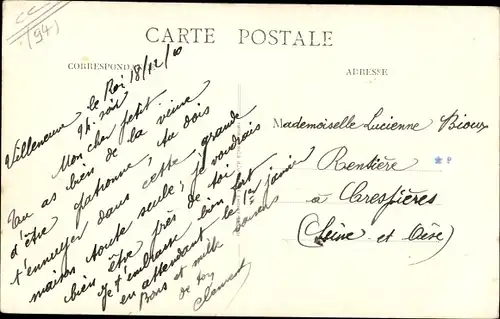 CC
(94)
CARTE POSTALE
CORRESPONDANCE
ADRESSE
Villeneuve le Roi 18/12/10
9h. soir
Mon cher petit
Tu as bien de la veine
d'être patronne, tu dois
t'ennuyer dans cette grande
maison toute seule; je voudrais
bien être près de toi
Je t'embrasse bien fort
en attendant le 1er janvier
Bons et mille baisers
de ton
Clement
Mademoiselle Lucienne Bioux
Rentière
à Crespières
(Seine et Oise)